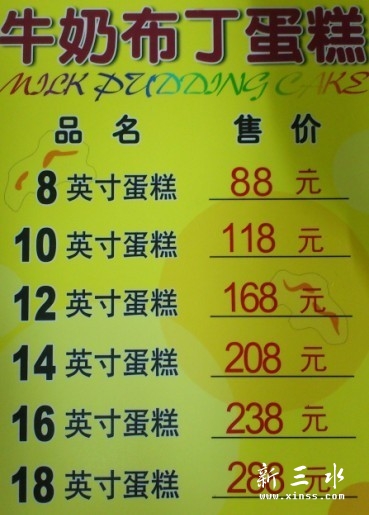 牛奶布丁蛋糕
MILK PUDDING CAKE
品名 售价
8英寸蛋糕 88元
10英寸蛋糕 118元
12英寸蛋糕 168元
14英寸蛋糕 208元
16英寸蛋糕 238元
18英寸蛋糕 288元
新三水
www.xinss.com